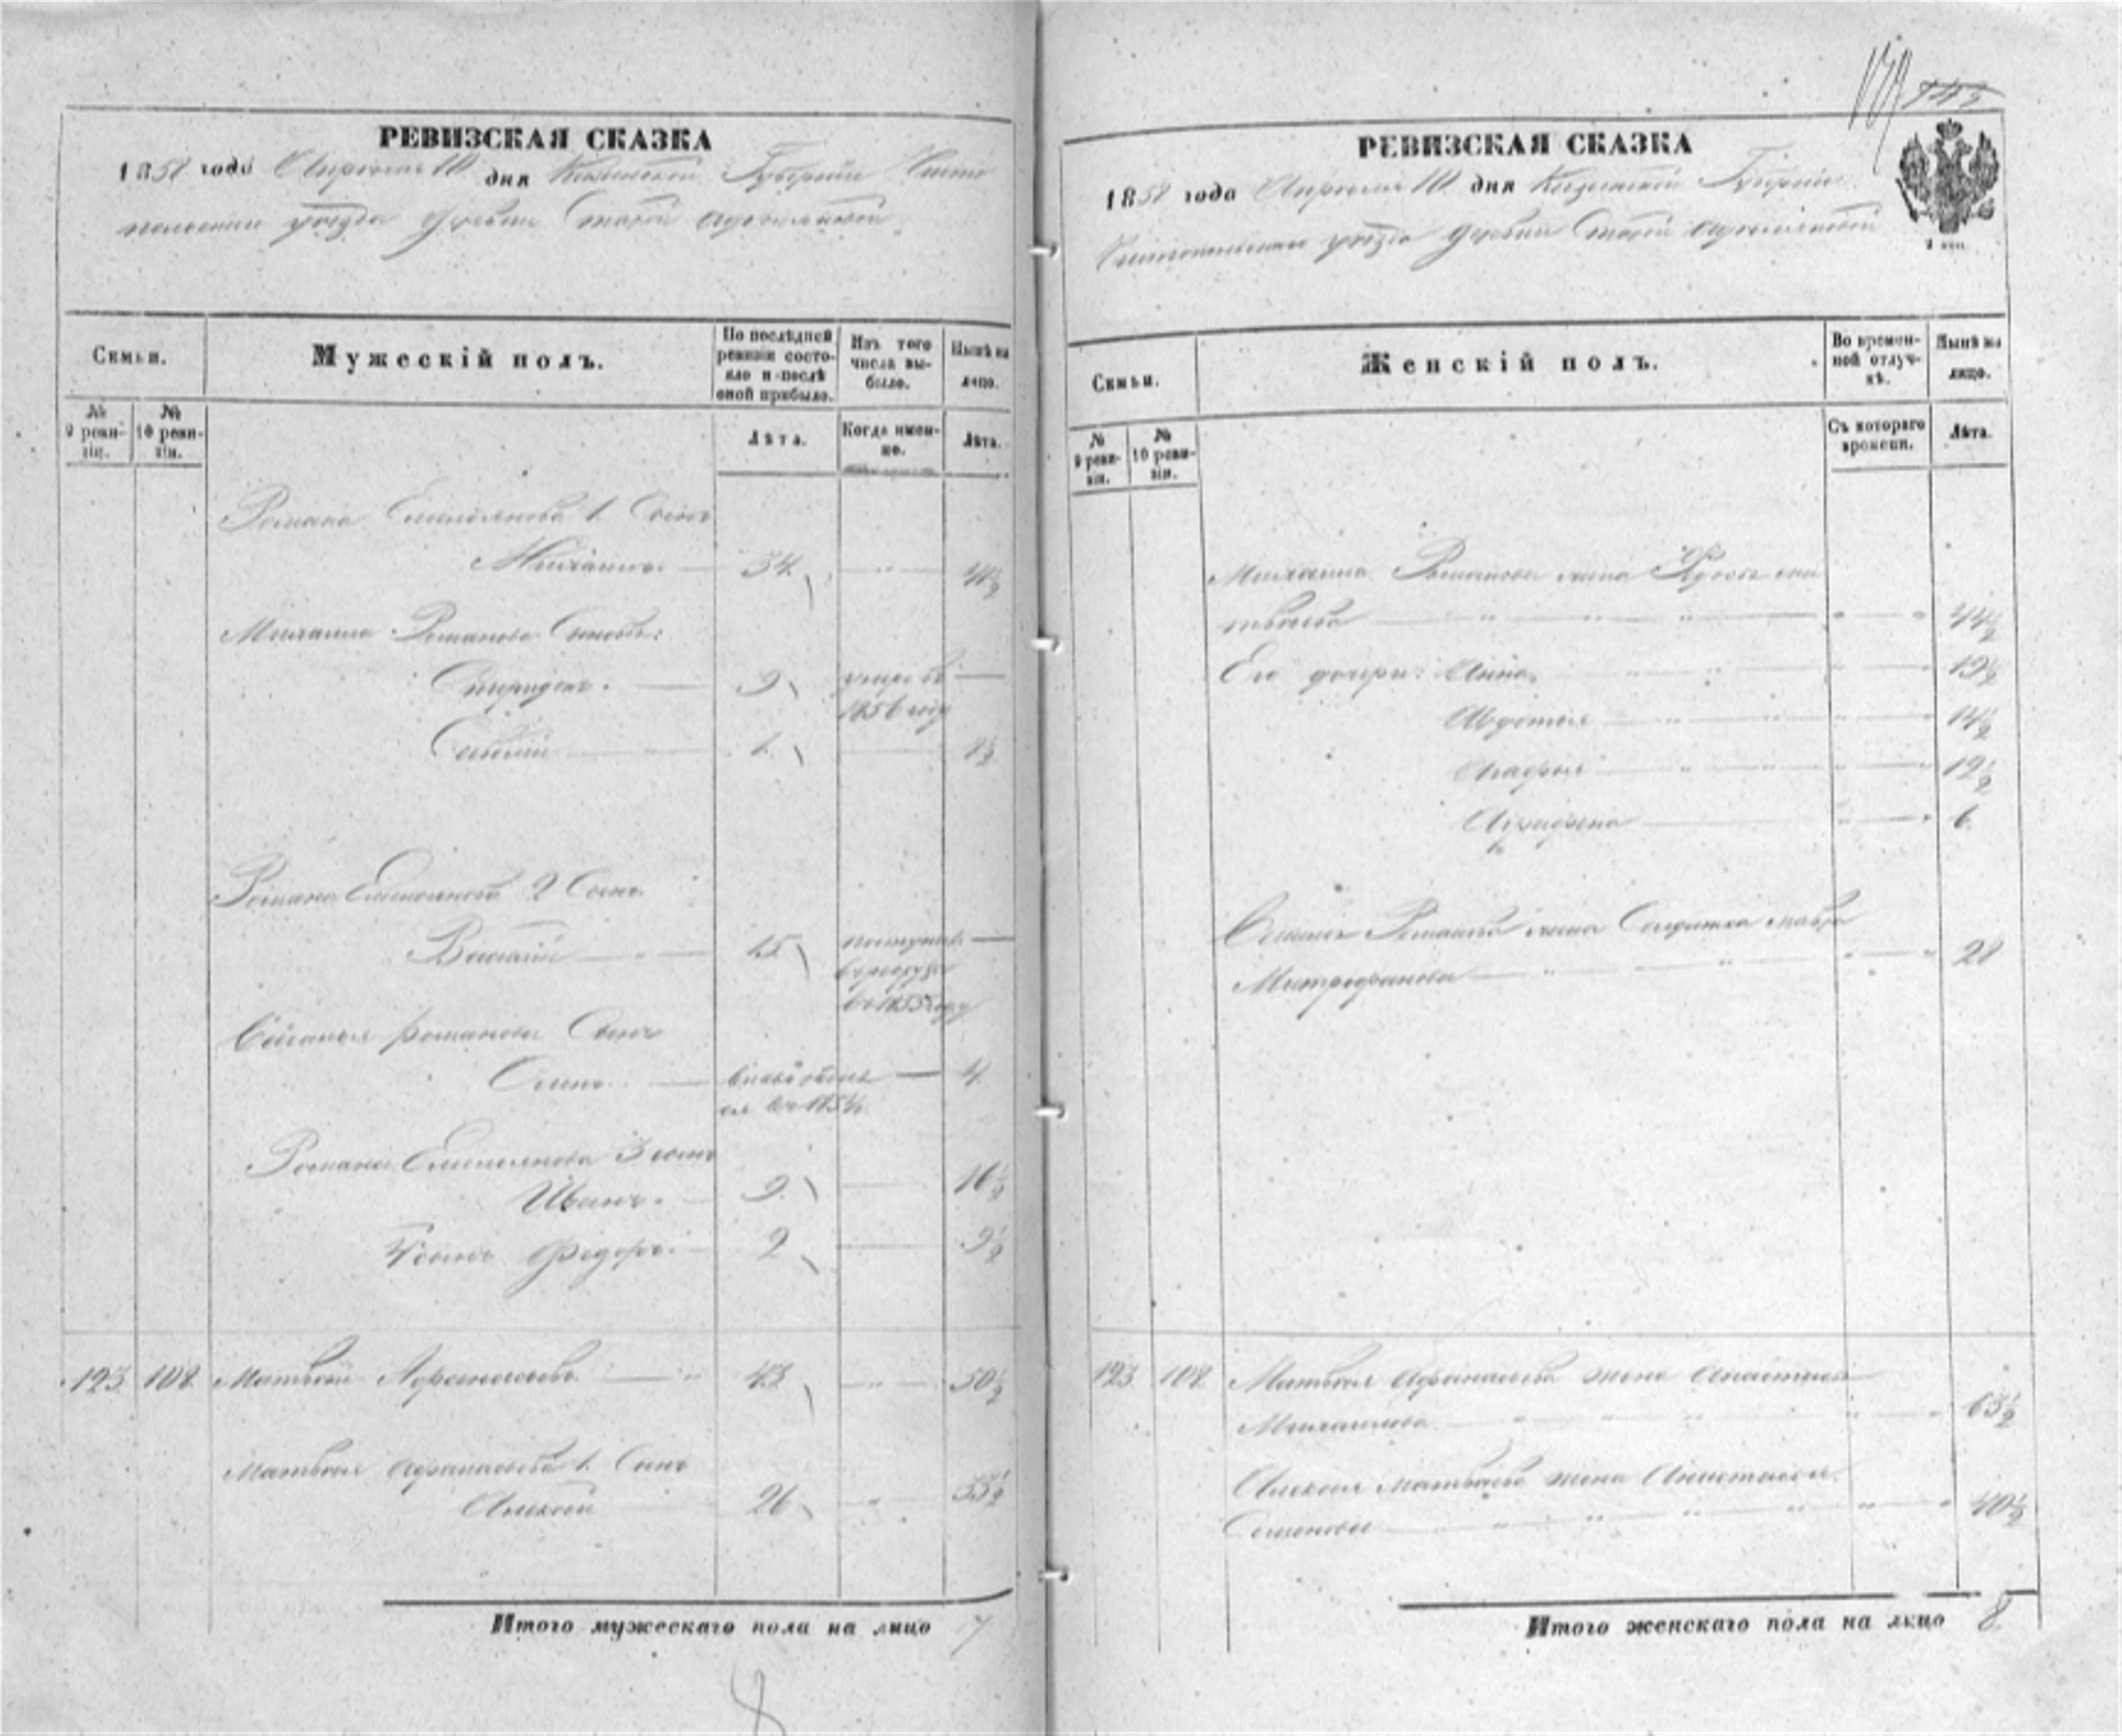 РЕВИЗСКАЯ СКАЗКА
1858 года Апреля 10 дня Казанской Губернии Чисто
польскаго уезда деревни Старой
Семьи.
Мужескій полъ.
По послѣдней ревизіи состояло и послѣ оной прибыло.
Изъ того числа выбыло.
Нынѣ на лицо.
№ 9 ревизіи.
№ 10 ревизіи.
Лѣта.
Когда именно.
Лѣта.
Романа Емельянова 1. Сынъ
Михаилъ 34. 41½
Михаила Романова Сыновья:
Спиридонъ. 9 умре въ
1856 году
1. 8½
Романа Емельянова 2 Сынъ
Василій 15 поступилъ
въ рекруты
въ 1855 году
Романова Сынъ
4
Романа Емельянова 3 сынъ
Иванъ. 9. 16½
4 сынъ Федоръ. 2 9½
123 108 Матвей Афанасьевъ 43 50½
Матвея Афанасьева 1. Сынъ
Алексей 26 33½
Итого мужескаго пола на лицо 7
8
РЕВИЗСКАЯ СКАЗКА
1858 года Апреля 10 дня Казанской Губерніи
Чистопольскаго уезда деревни Старой
Семьи.
Женскій полъ.
Во временной отлучкѣ.
Нынѣ на лицо.
№ 9 ревизіи.
№ 10 ревизіи.
Съ котораго времени.
Лѣта.
Михаила Романова жена Ма
твеева 44½
Его дочери: Анна 19½
Авдотья 14½
Агафья 12½
Аграфена 6
Романова жена Солдатка Мавра
Митрофанова 28
123 108 Матвея Афанасьева жена Анастасья
Михайлова 63½
Алексея Матвеева жена Анастасья
Семенова 40½
Итого женскаго пола на лицо 8